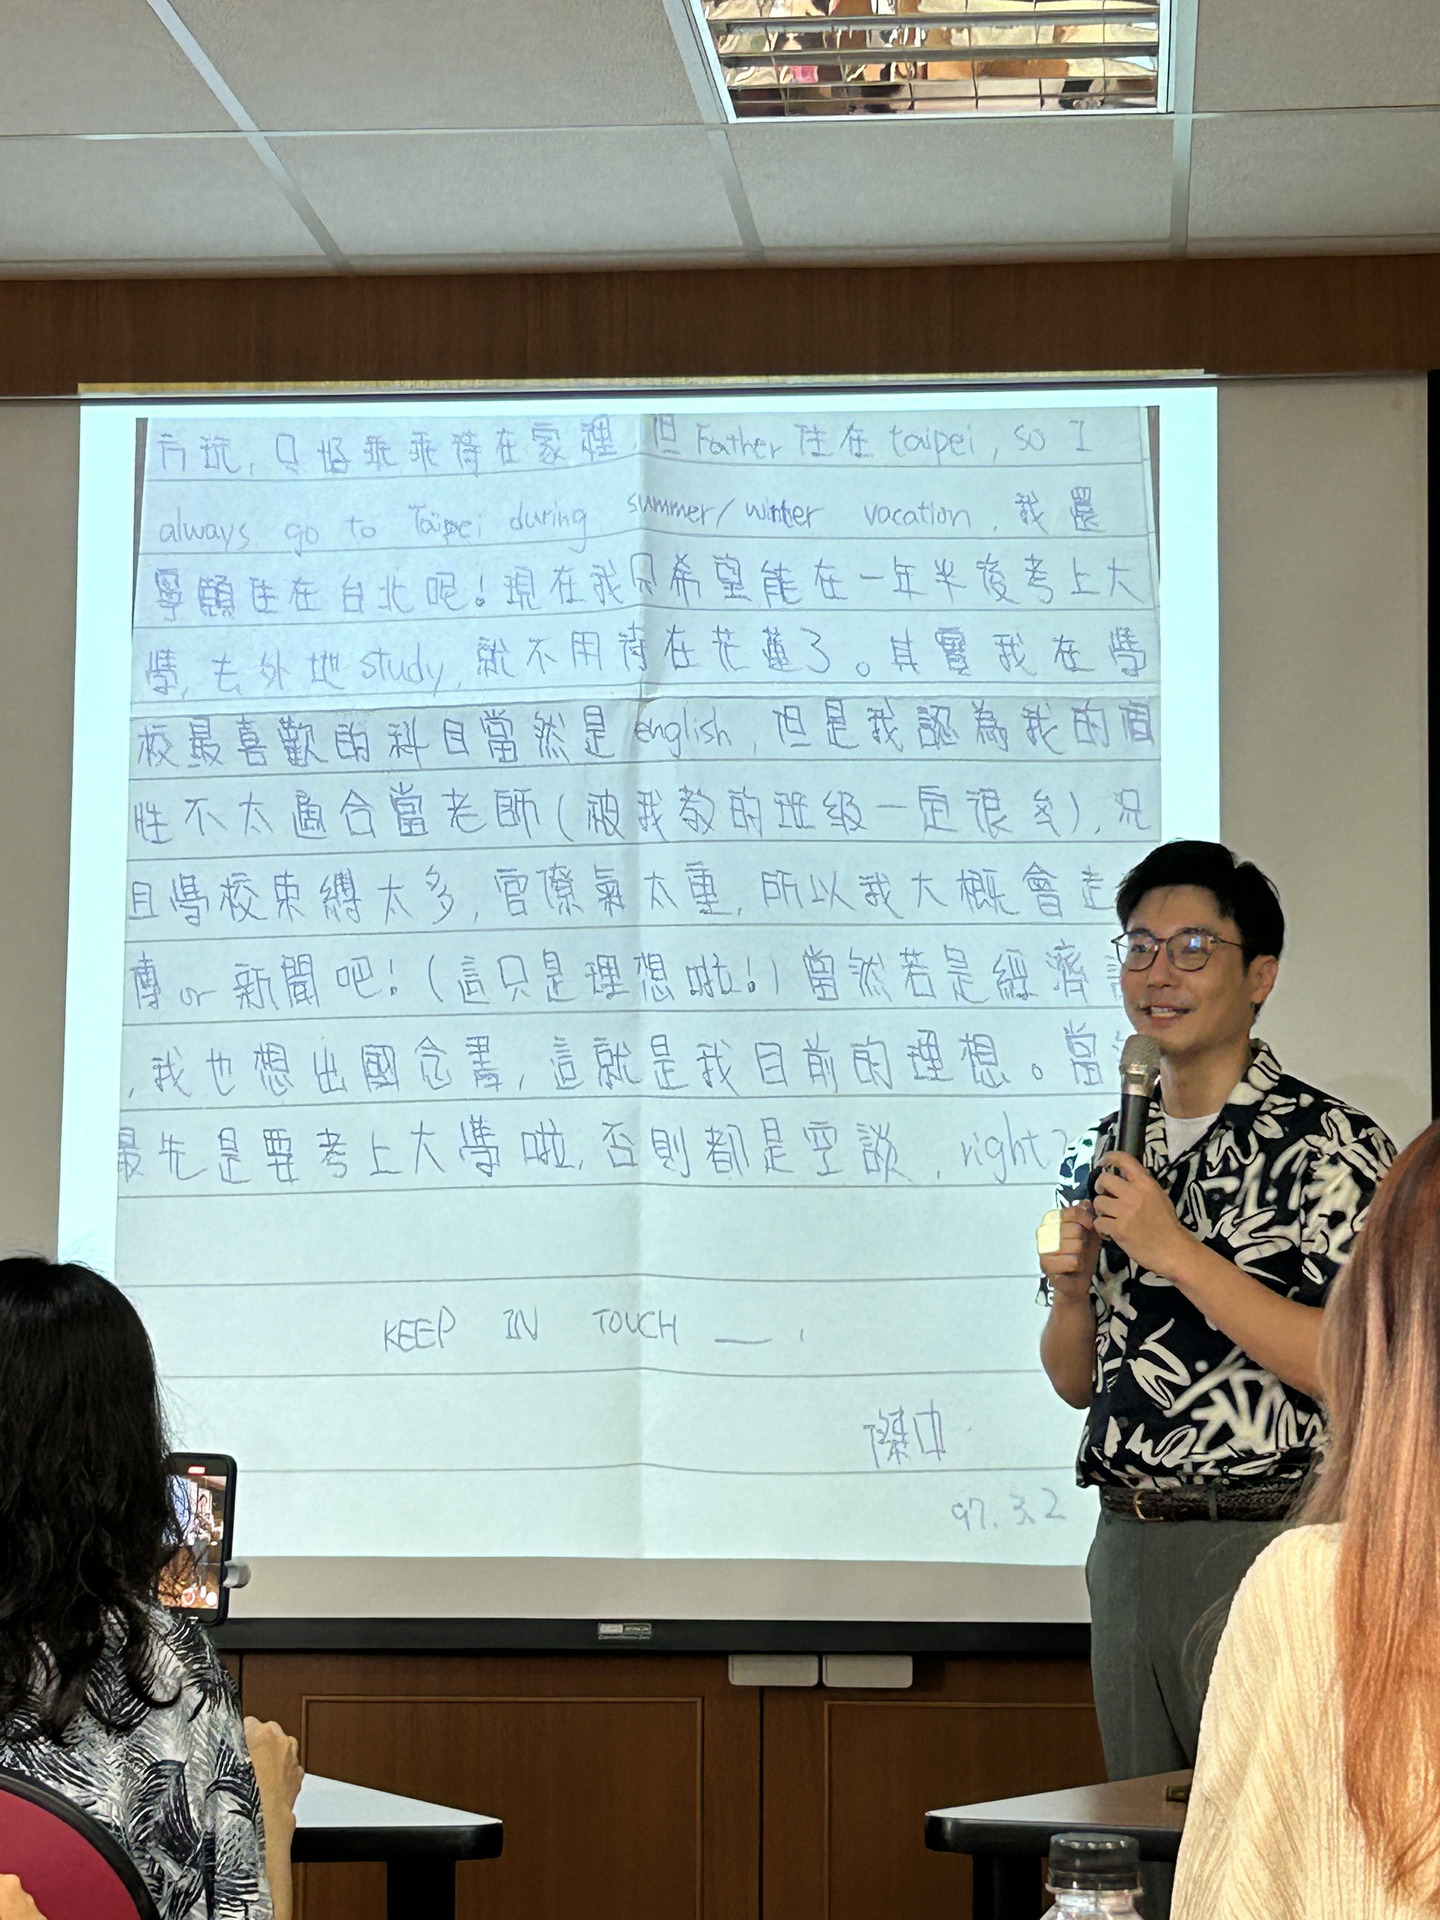 方玩,只好乖乖待在家裡,但Father住在taipei, so I
always go to Taipei during summer/winter vacation,我還
寧願住在台北呢!現在我只希望能在一年半後考上大
學,去外地study,就不用待在花蓮了。其實我在學
校最喜歡的科目當然是english,但是我認為我的個
性不太適合當老師(被我教的班級一定很多),況
且學校束縛太多,官僚氣太重,所以我大概會走
傳or新聞吧!(這只是理想啦!)當然若是經濟
,我也想出國念書,這就是我目前的理想。當
最先是要考上大學啦,否則都是空談,right?
KEEP IN TOUCH
傑中
97.3.2